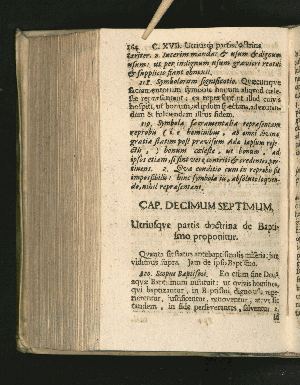 164 C. XVII. Utriusq; partis doctrina
pariter. 2. Interim manducat & usum & dignum
usum: ut per indignum usum graviori reatui
& supplicio fiant obnoxii.
218. Symbolorum significatio. Quæcunque
sacramentorum symbola bonum aliquod cœle-
ste repræsentant; ea repræsentant illud cuivis
hospiti, ut bonum, ad ipsum spectans,
dam & fruendum istius fidem.
219. Symbola sacramentalia repræsentant
reprobu (i. e hominibus, ab omni divinæ
gratiæ statim post prævisum Adæ lapsum reje-
ctis,) bonum cœleste, ut bonum, ad
ipsos etiam, si sint verè contriti & credentes, per-
tinens. 2. Quæ conditio cum in reprobis sit
impossibilis: hinc symbola iis, absolutè loquen-
do, nihil repræsentant.
CAP. DECIMUM SEPTIMUM,
Utriusqve partis doctrina de Bapti-
smo proponitur.
Quanta sit status antebaptismalis miseria; jam
vidimus supra. Jam de ipso Baptismo.
220. Scopus Baptismi. En etiam sine Deus
neque Baptismum instituit: ut quivis homines,
qui baptizantur, in Baptismi dignorum rege-
nerentur, justificentur, renoventur, atque sic
tandem, in fide perseverantes, salventur. 2.
id